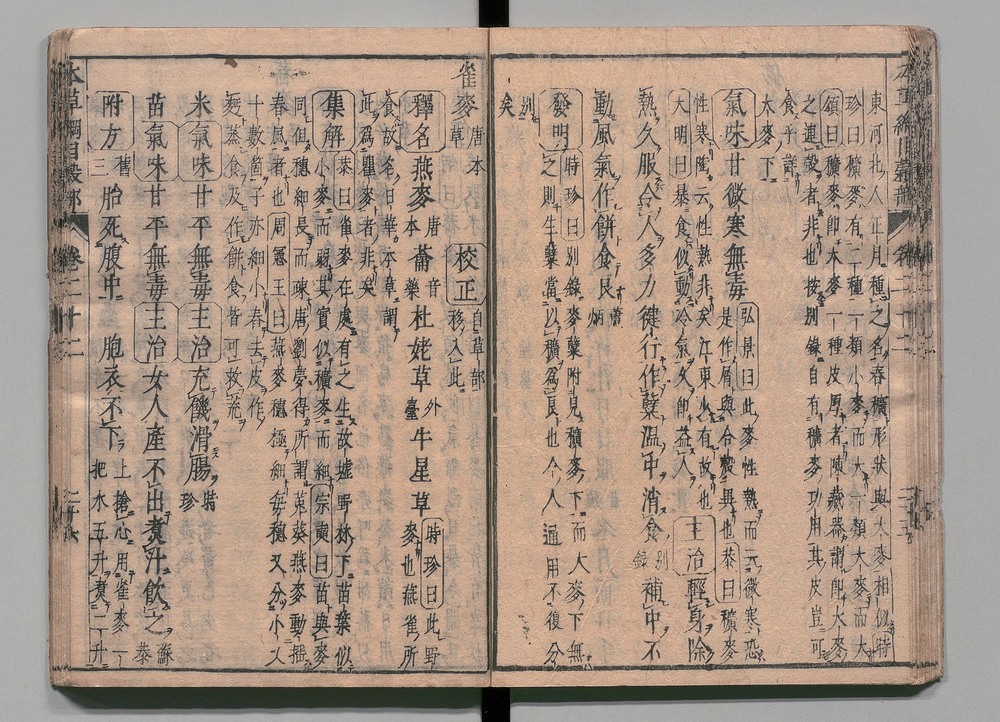 東河北人正月種之名春穬形狀與大麥相似時
珍曰穬麥有二種一類小麥而大一類大麥而大
頌曰穬麥即大麥一種皮厚者陳藏器謂即大麥
之連殼者非也按別錄自有穬麥功用其皮豈可
食乎詳
大麥下
氣味甘微寒無毒弘景曰此麥性熱而云微寒恐
是作屑與合殼異也恭曰穬麥
性寒陶云性熱非矣江東少有故也
大明曰暴食似動冷氣久即益人主治輕身除
熱久服令人多力健行作糵温中消食別錄補中不
動風氣作餅食良蕭炳
發明時珍曰別錄麥糵附見穬麥下而大麥下無
之則生糵當以穬爲良也今人通用不復分
別
矣
雀麥唐本草校正自草部移入此
釋名燕麥唐本蘥音藥杜姥草外臺牛星草時珍曰此野
麥也燕雀所
食故名日華本草謂
此爲瞿麥者非矣
集解恭曰雀麥在處有之生故墟野林下苗葉似
小麥而弱其實似穬麥而細宗奭曰苗與麥
同但穗細長而疎唐劉夢得所謂菟葵燕麥動搖
春風者也周憲王曰燕麥穗極細每穗又分小叉
十數箇子亦細小舂去皮作
麪蒸食及作餅食皆可救荒
米氣味甘平無毒主治充饑滑腸時珍
苗氣味甘平無毒主治女人産不出煮汁飲之蘇恭
附方舊三胎死腹中 胞衣不下上搶心用雀麥一
把水五升煮二升
本草綱目穀部 卷二十二